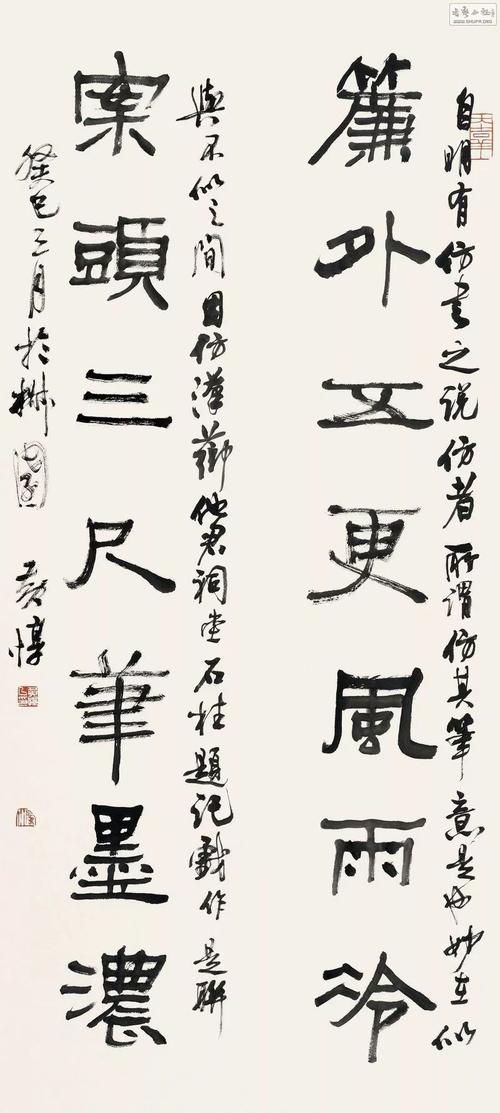 自明有仿書之說仿者所謂仿其筆意是也妙在似
簾外五更風雨冷
與不似之間因仿漢薌他君祠堂石柱題記戲作是聯
案頭三尺筆墨濃
癸巳三月於園黃惇
WWW.SHUFA.ORG